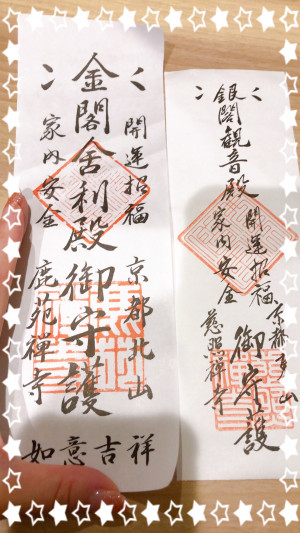 開運招福
京都北山
金閣舎利殿御守護
家内安全
鹿苑禅寺
如意吉祥
開運招福
京都東山
銀閣観音殿
御守護
家内安全
慈照禅寺